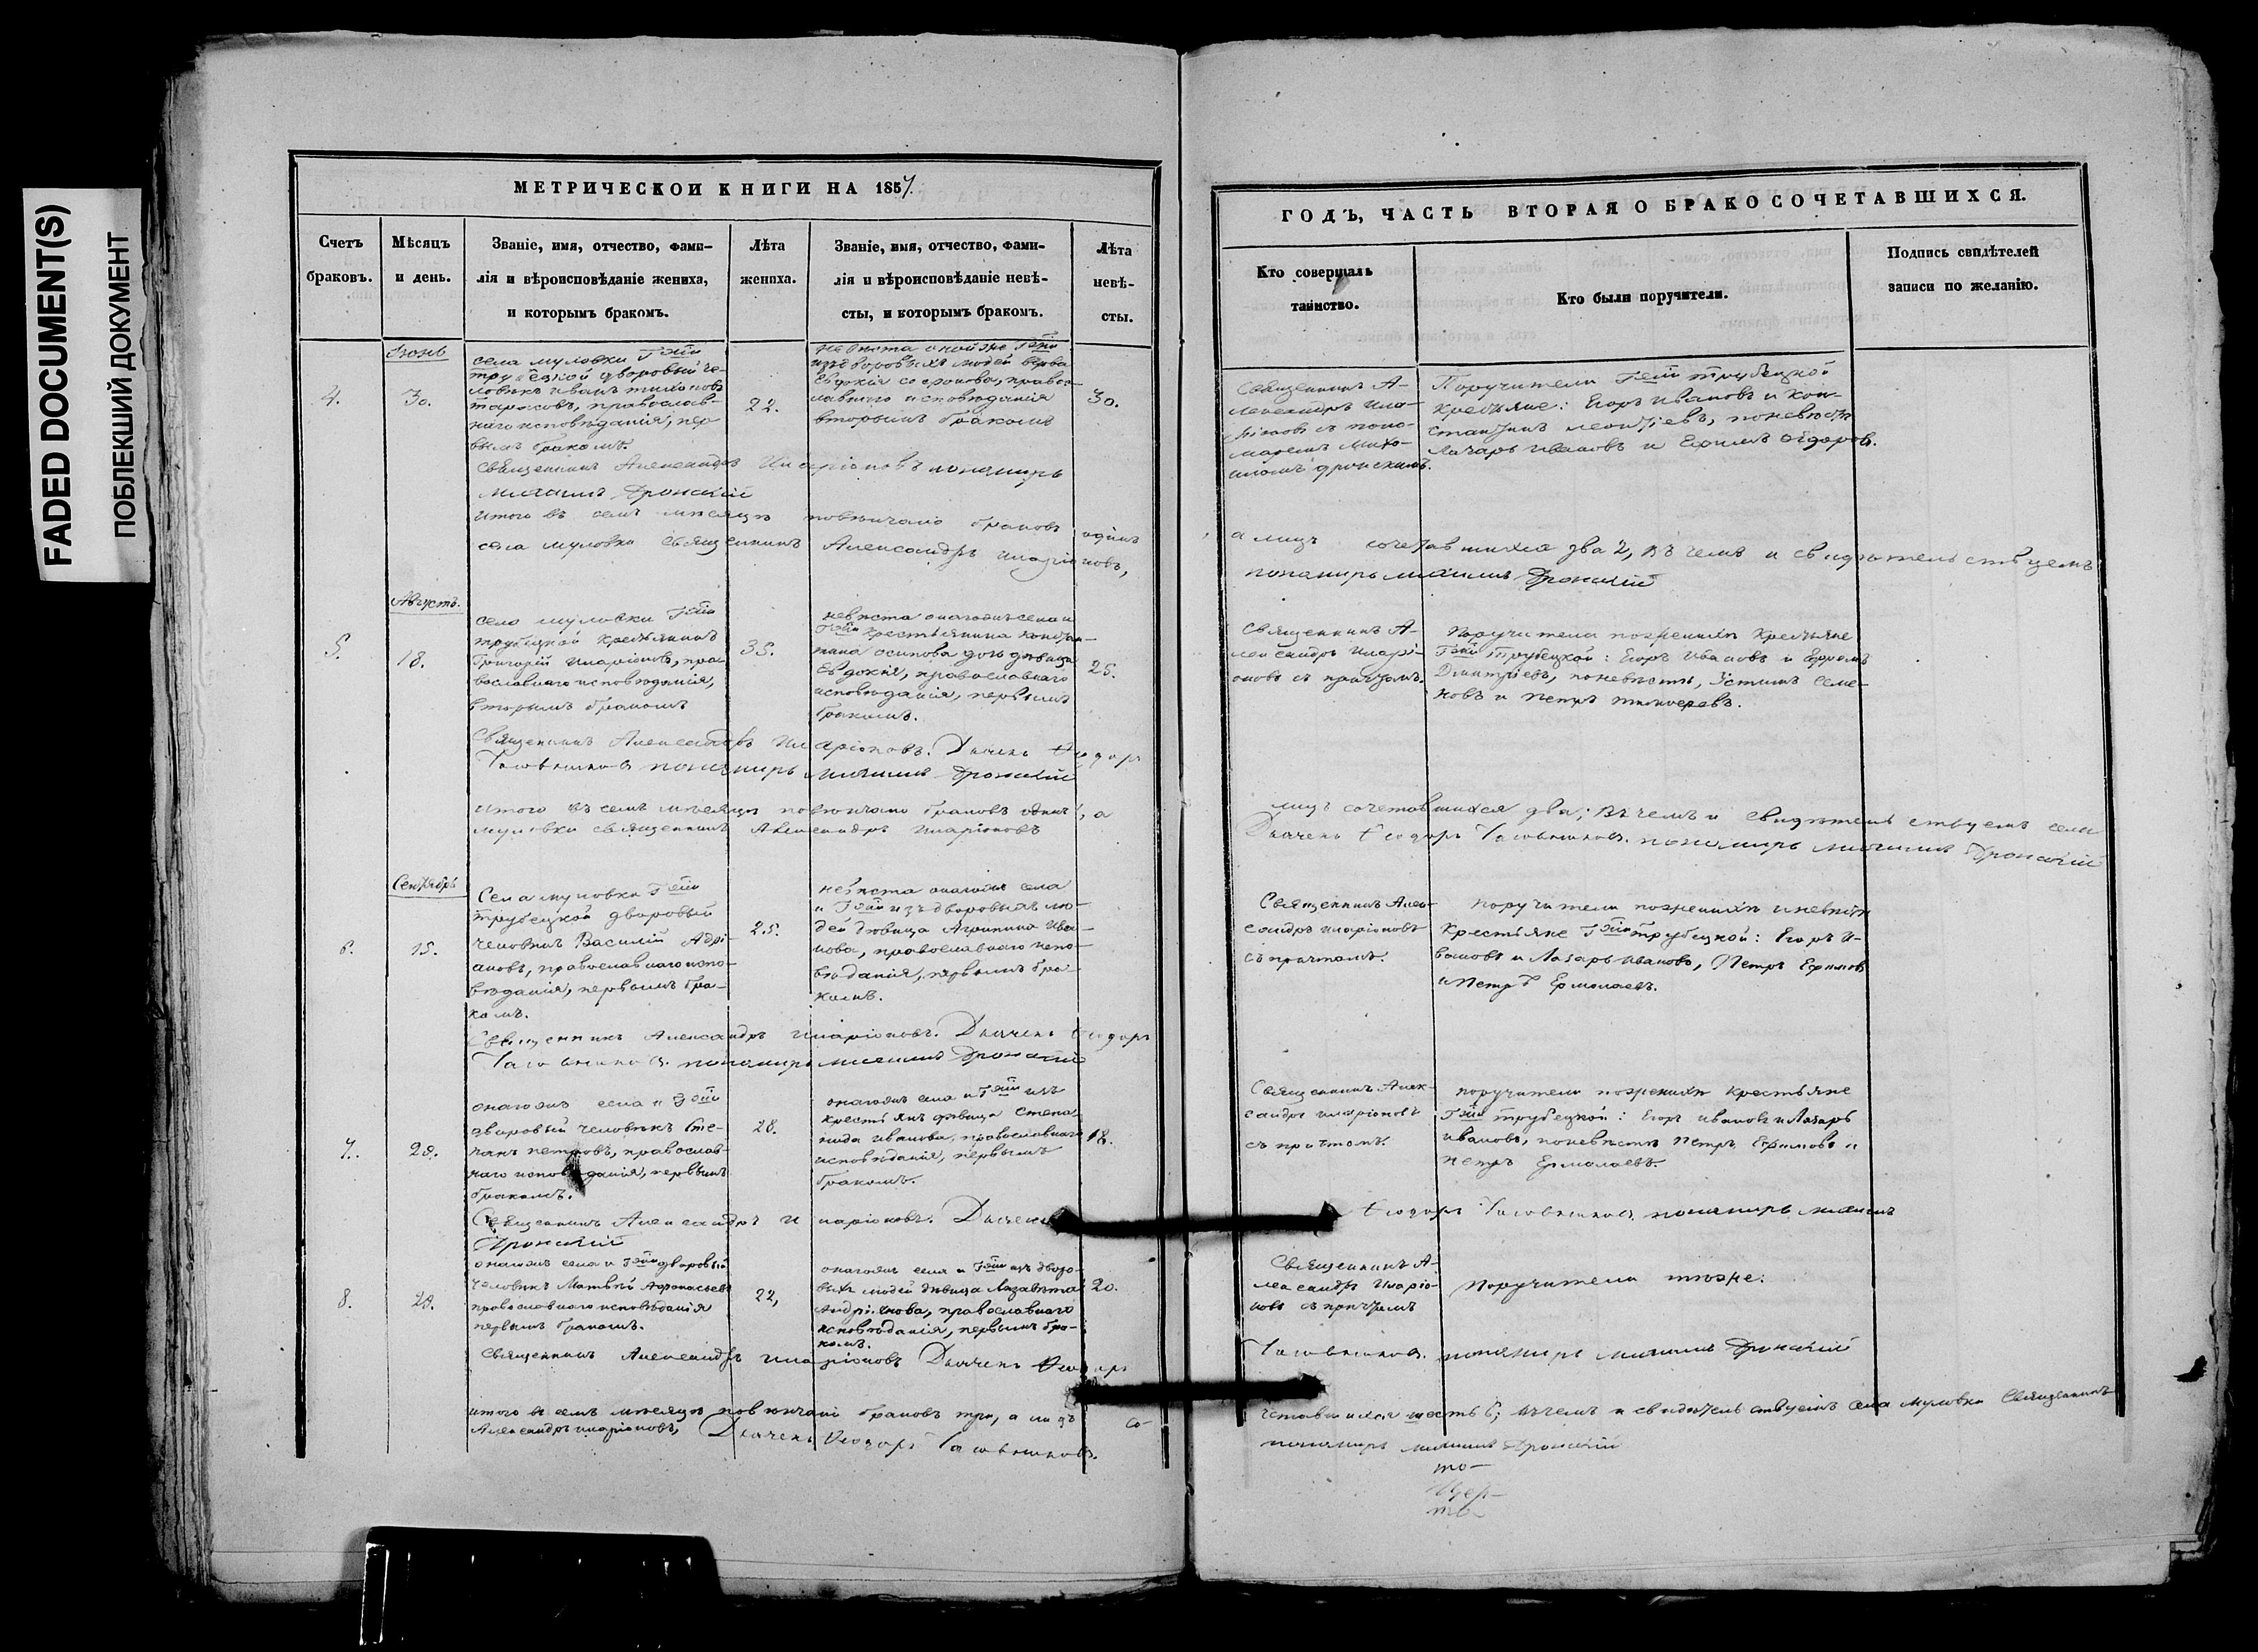 FADED DOCUMENT(S)
ПОБЛЕКШИЙ ДОКУМЕНТ
МЕТРИЧЕСКОИ КНИГИ НА 1857.
Счетъ браковъ.
Мѣсяцъ и день.
Званіе, имя, отчество, фами-
лія и вѣроисповѣданіе жениха,
и которымъ бракомъ.
Лѣта жениха.
Званіе, имя, отчество, фами-
лія и вѣроисповѣданіе невѣ-
сты, и которымъ бракомъ.
Лѣта невѣ-
сты.
ГОДЪ, ЧАСТЬ ВТОРАЯ О БРАКОСОЧЕТАВШИХСЯ.
Кто совершалъ
таинство.
Кто были поручители.
Подпись свидѣтелей
записи по желанію.
Іюнь
4.
30.
села муловки Гжи
трубецкой дворовый че-
ловѣкъ иванъ
тарасовъ, православ-
наго исповѣданія, пер
вымъ бракомъ.
22.
невѣста оной же Гжи
изъ дворовыхъ людей вдова
Евдокія православ-
лавнаго исповѣданія
вторымъ бракомъ
30.
Священникъ А-
лександръ Ила-
ріоновъ с поно-
маремъ Миха-
иломъ дронскимъ.
Поручители Гжи трубецкой
крестьяне: Егоръ Ивановъ и Кон-
стантинъ леонтіевъ, по невѣстѣ
Лазарь ивановъ и Ефимъ
Священникъ Александръ Иларіоновъ пономарь
михаилъ Дронскій
итого въ семъ мѣсяцѣ повѣнчано браковъ одинъ
а лицъ сочетавшихся два 2, въ чемъ и свидѣтельствуемъ
села муловки священникъ Александръ иларіоновъ,
пономарь михаилъ Дронскій
Августъ.
5.
18.
села муловки Гжи
трубецкой крестьянинъ
Григорій иларіоновъ, пра
вославнаго исповѣданія,
вторымъ бракомъ
35.
невѣста онагожъ села и
Гжи крестьянина констан-
тина осипова дочь дѣвица
Евдокія, православнаго
исповѣданія, первымъ
бракомъ.
25.
Священникъ А-
лександръ Иларі-
оновъ съ причтомъ.
Поручители по женихѣ крестьяне
Гжи Трубецкой: Егоръ Ивановъ и Ефремъ
Дмитріевъ, по невѣстѣ, Устинъ Семе-
новъ и Петръ тимоѳеевъ.
Священникъ Александръ Иларіоновъ. Дьячекъ Ѳеодоръ
пономарь михаилъ Дронскій
итого въ семъ мѣсяцѣ повѣнчано браковъ одинъ, а
лицъ сочетавшихся два; въ чемъ и свидѣтельствуемъ села
муловки священникъ Александръ иларіоновъ
Дьячекъ Ѳеодоръ пономарь михаилъ Дронскій
Сентябрь
6.
15.
Села муловки Гжи
трубецкой дворовый
человѣкъ Василій Адрі-
ановъ, православнаго испо-
вѣданія, первымъ бра-
комъ.
25.
невѣста онагожъ села
и Гжи изъ дворовыхъ лю-
дей дѣвица Агрипина Ива-
нова, православнаго испо-
вѣданія, первымъ бра
комъ.
Священникъ Алек-
сандръ иларіоновъ
съ причтомъ.
поручители по женихѣ и невѣстѣ
крестьяне Гжи трубецкой: Егоръ И-
вановъ и Лазарь Ивановъ, Петръ Ефимовъ
и Петръ Ермолаевъ.
Священникъ Александръ иларіоновъ. Дьячекъ Ѳеодоръ
пономарь михаилъ Дронскій
7.
29.
онагожъ села и Гжи
дворовый человѣкъ Сте-
панъ петровъ, православ-
наго исповѣданія, первымъ
бракомъ.
28.
онагожъ села и Гжи изъ
крестьянъ дѣвица Степа
нида иванова, православнаго
исповѣданія, первымъ
бракомъ.
18.
Священникъ Алек-
сандръ иларіоновъ
съ причтомъ.
поручители по женихѣ крестьяне
Гжи трубецкой: Егоръ ивановъ и Лазарь
ивановъ, по невѣстѣ Петръ Ефимовъ и
петръ Ермолаевъ.
Священникъ Александръ Иларіоновъ. Дьячекъ
Ѳеодоръ пономарь михаилъ
Дронскій
8.
29.
онагожъ села и Гжи дворовый
человѣкъ Матвѣй Афонасьевъ
православнаго исповѣданія
первымъ бракомъ.
22,
онагожъ села и Гжи изъ дворо-
выхъ людей дѣвица Лизавета
Андріянова, православнаго
исповѣданія, первымъ бра-
комъ.
20.
Священникъ А-
лександръ Иларіо-
новъ съ причтомъ
Поручители тѣже.
Священникъ Александръ иларіоновъ Дьячекъ Ѳеодоръ
пономарь михаилъ Дронскій
итого въ семъ мѣсяцѣ повѣнчано браковъ три, а лицъ со-
четавшихся шесть 6; въ чемъ и свидѣтельствуемъ села муловки Священникъ
Александръ иларіоновъ, Дьячекъ Ѳеодоръ
пономарь михаилъ Дронскій